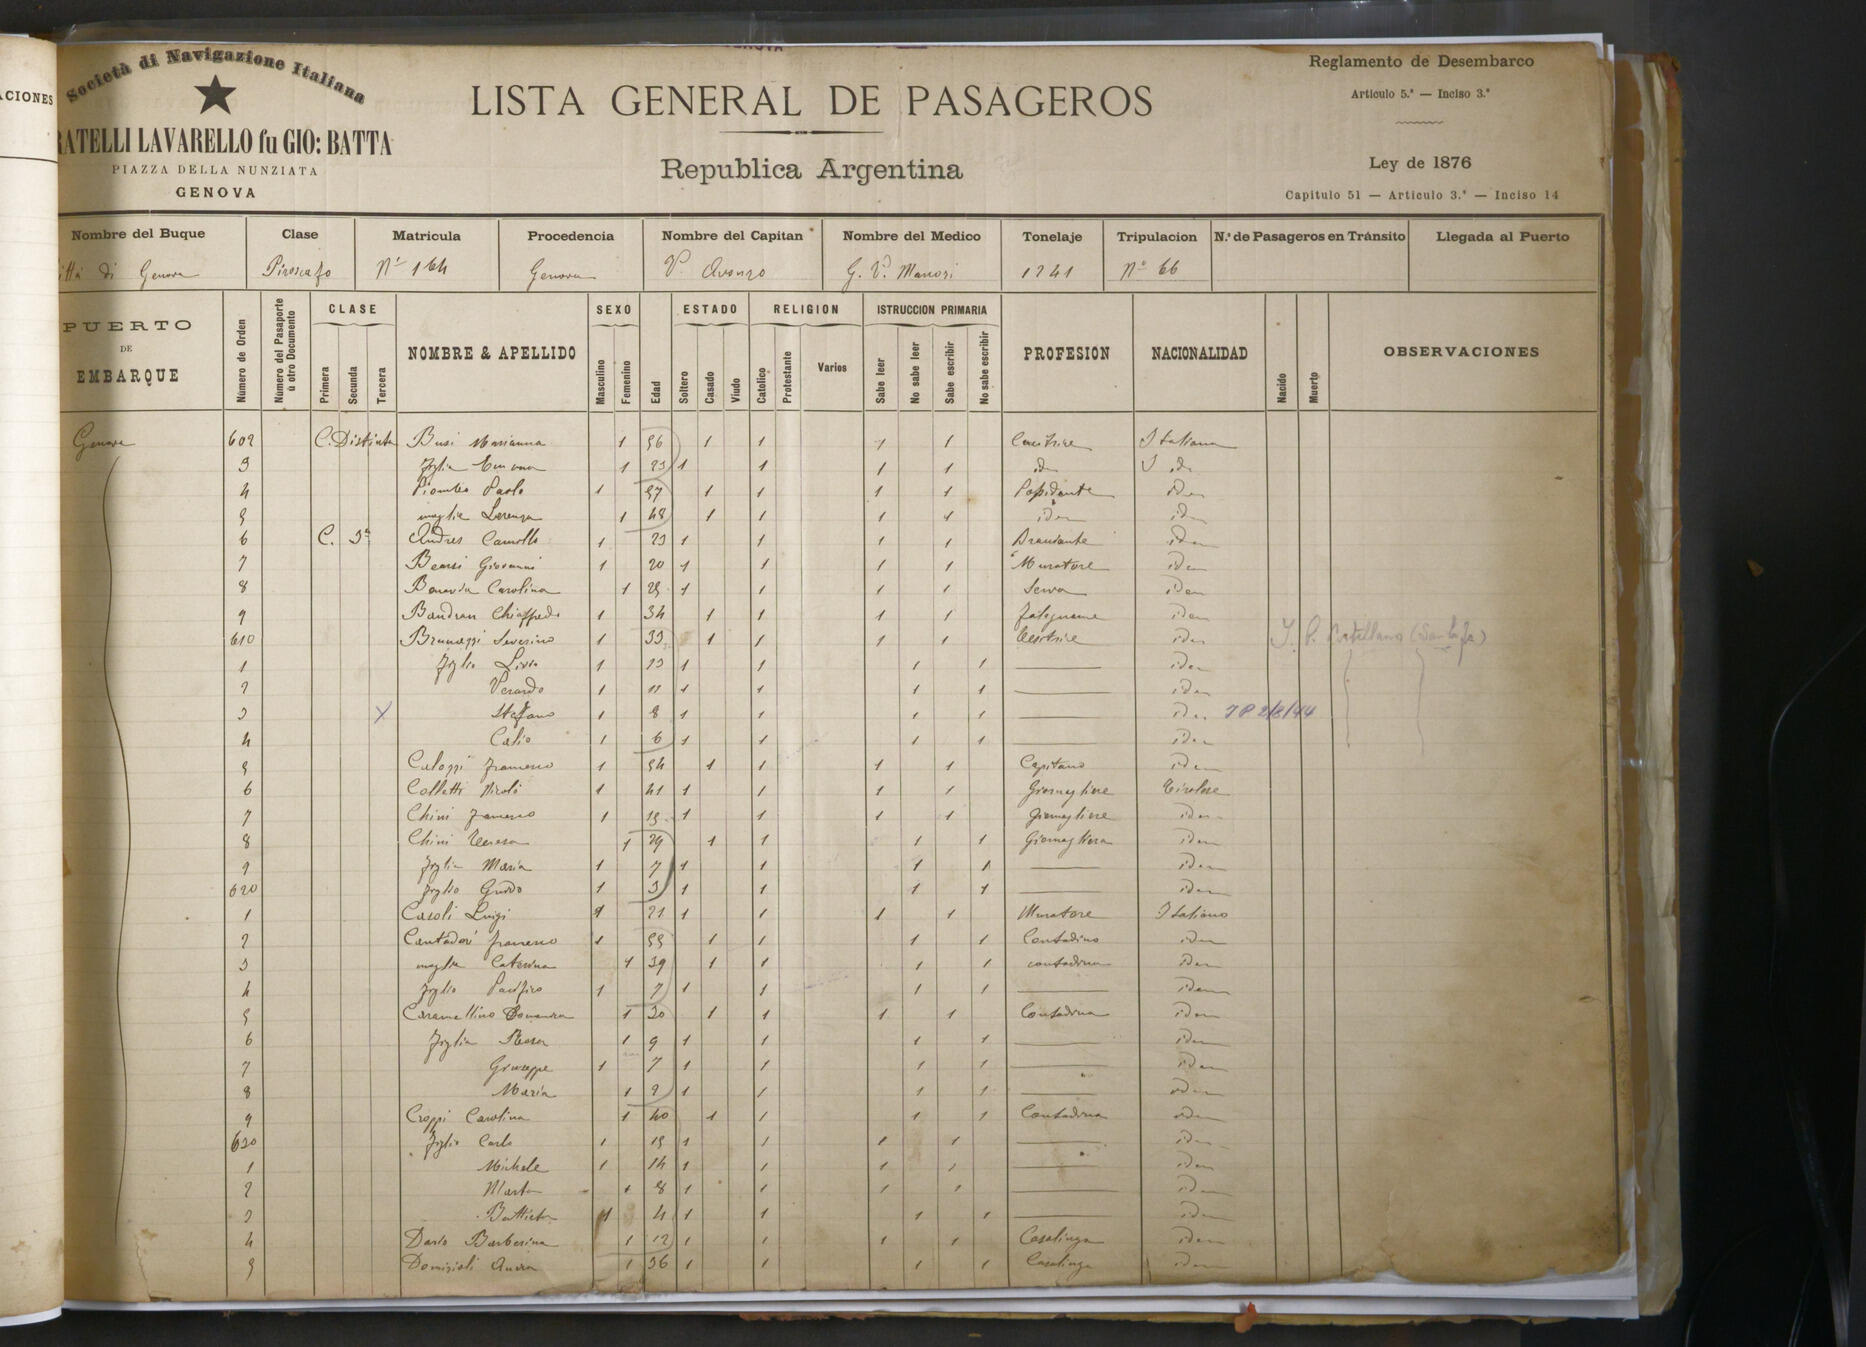 ACIONES
Società di Navigazione Italiana
RATELLI LAVARELLO fu GIO: BATTA
PIAZZA DELLA NUNZIATA
GENOVA
LISTA GENERAL DE PASAGEROS
Republica Argentina
Reglamento de Desembarco
Articulo 5.° — Inciso 3.°
Ley de 1876
Capitulo 51 — Articulo 3.° — Inciso 14
Nombre del Buque Clase Matricula Procedencia Nombre del Capitan Nombre del Medico Tonelaje Tripulacion N.° de Pasageros en Tránsito Llegada al Puerto
ittà di Genova Piroscafo N° 164 Genova V. Avonzo G. V. 1241 N° 66
PUERTO DE EMBARQUE Número de Orden Número del Pasaporte ú otro Documento CLASE Primera Secunda Tercera NOMBRE & APELLIDO SEXO Masculino Femenino Edad ESTADO Soltero Casado Viudo RELIGION Catolico Protestante Varios ISTRUCCION PRIMARIA Sabe leer No sabe leer Sabe escribir No sabe escribir PROFESION NACIONALIDAD Nacido Muerto OBSERVACIONES
Genova 602 C. Distinta Busi Marianna 1 56 1 1 1 1 Cucitrice Italiana
3 figlia Emma 1 23 1 1 1 1 id
4 Piombo Paolo 1 57 1 1 1 1 Possidente idem
5 moglie Lorenza 1 48 1 1 1 1 idem idem
6 C. 3ª Andres Camillo 1 23 1 1 1 1 idem
7 Giovanni 1 20 1 1 1 1 Muratore idem
8 Carolina 1 25 1 1 1 1 Serva idem
9 Chiaffredo 1 34 1 1 1 1 falegname idem
610 Brunazzi Severino 1 33 1 1 1 1 idem
1 figlio Livio 1 13 1 1 1 1 idem
2 Verardo 1 11 1 1 1 1 idem
3 X Stefano 1 8 1 1 1 1 idem 2/8/44
4 1 6 1 1 1 1 idem
5 Francesco 1 54 1 1 1 1 Capitano idem
6 Colletti Nicolò 1 41 1 1 1 1 Giornagliere Tirolese
7 Chini Francesco 1 15 1 1 1 1 giornagliere idem
8 Chini Teresa 1 29 1 1 1 1 Giornagliera idem
9 figlia Maria 1 7 1 1 1 1 idem
620 figlio Guido 1 3 1 1 1 1 idem
1 Casoli Luigi 1 21 1 1 1 1 Muratore Italiano
2 Cantadori Francesco 1 55 1 1 1 1 Contadino idem
3 moglie Caterina 1 39 1 1 1 1 contadina idem
4 figlio Pacifico 1 7 1 1 1 1 idem
5 Caramellino Domenica 1 30 1 1 1 1 Contadina idem
6 figlia Rosa 1 9 1 1 1 1 idem
7 Giuseppe 1 7 1 1 1 1 idem
8 Maria 1 2 1 1 1 1 idem
9 Croppi Carolina 1 40 1 1 1 1 Contadina idem
630 figlio Carlo 1 15 1 1 1 1 idem
1 Michele 1 14 1 1 1 1 idem
2 Marta 1 8 1 1 1 1 idem
3 Battista 1 4 1 1 1 1 idem
4 Barberina 1 12 1 1 1 1 Casalinga idem
5 1 36 1 1 1 1 Casalinga idem